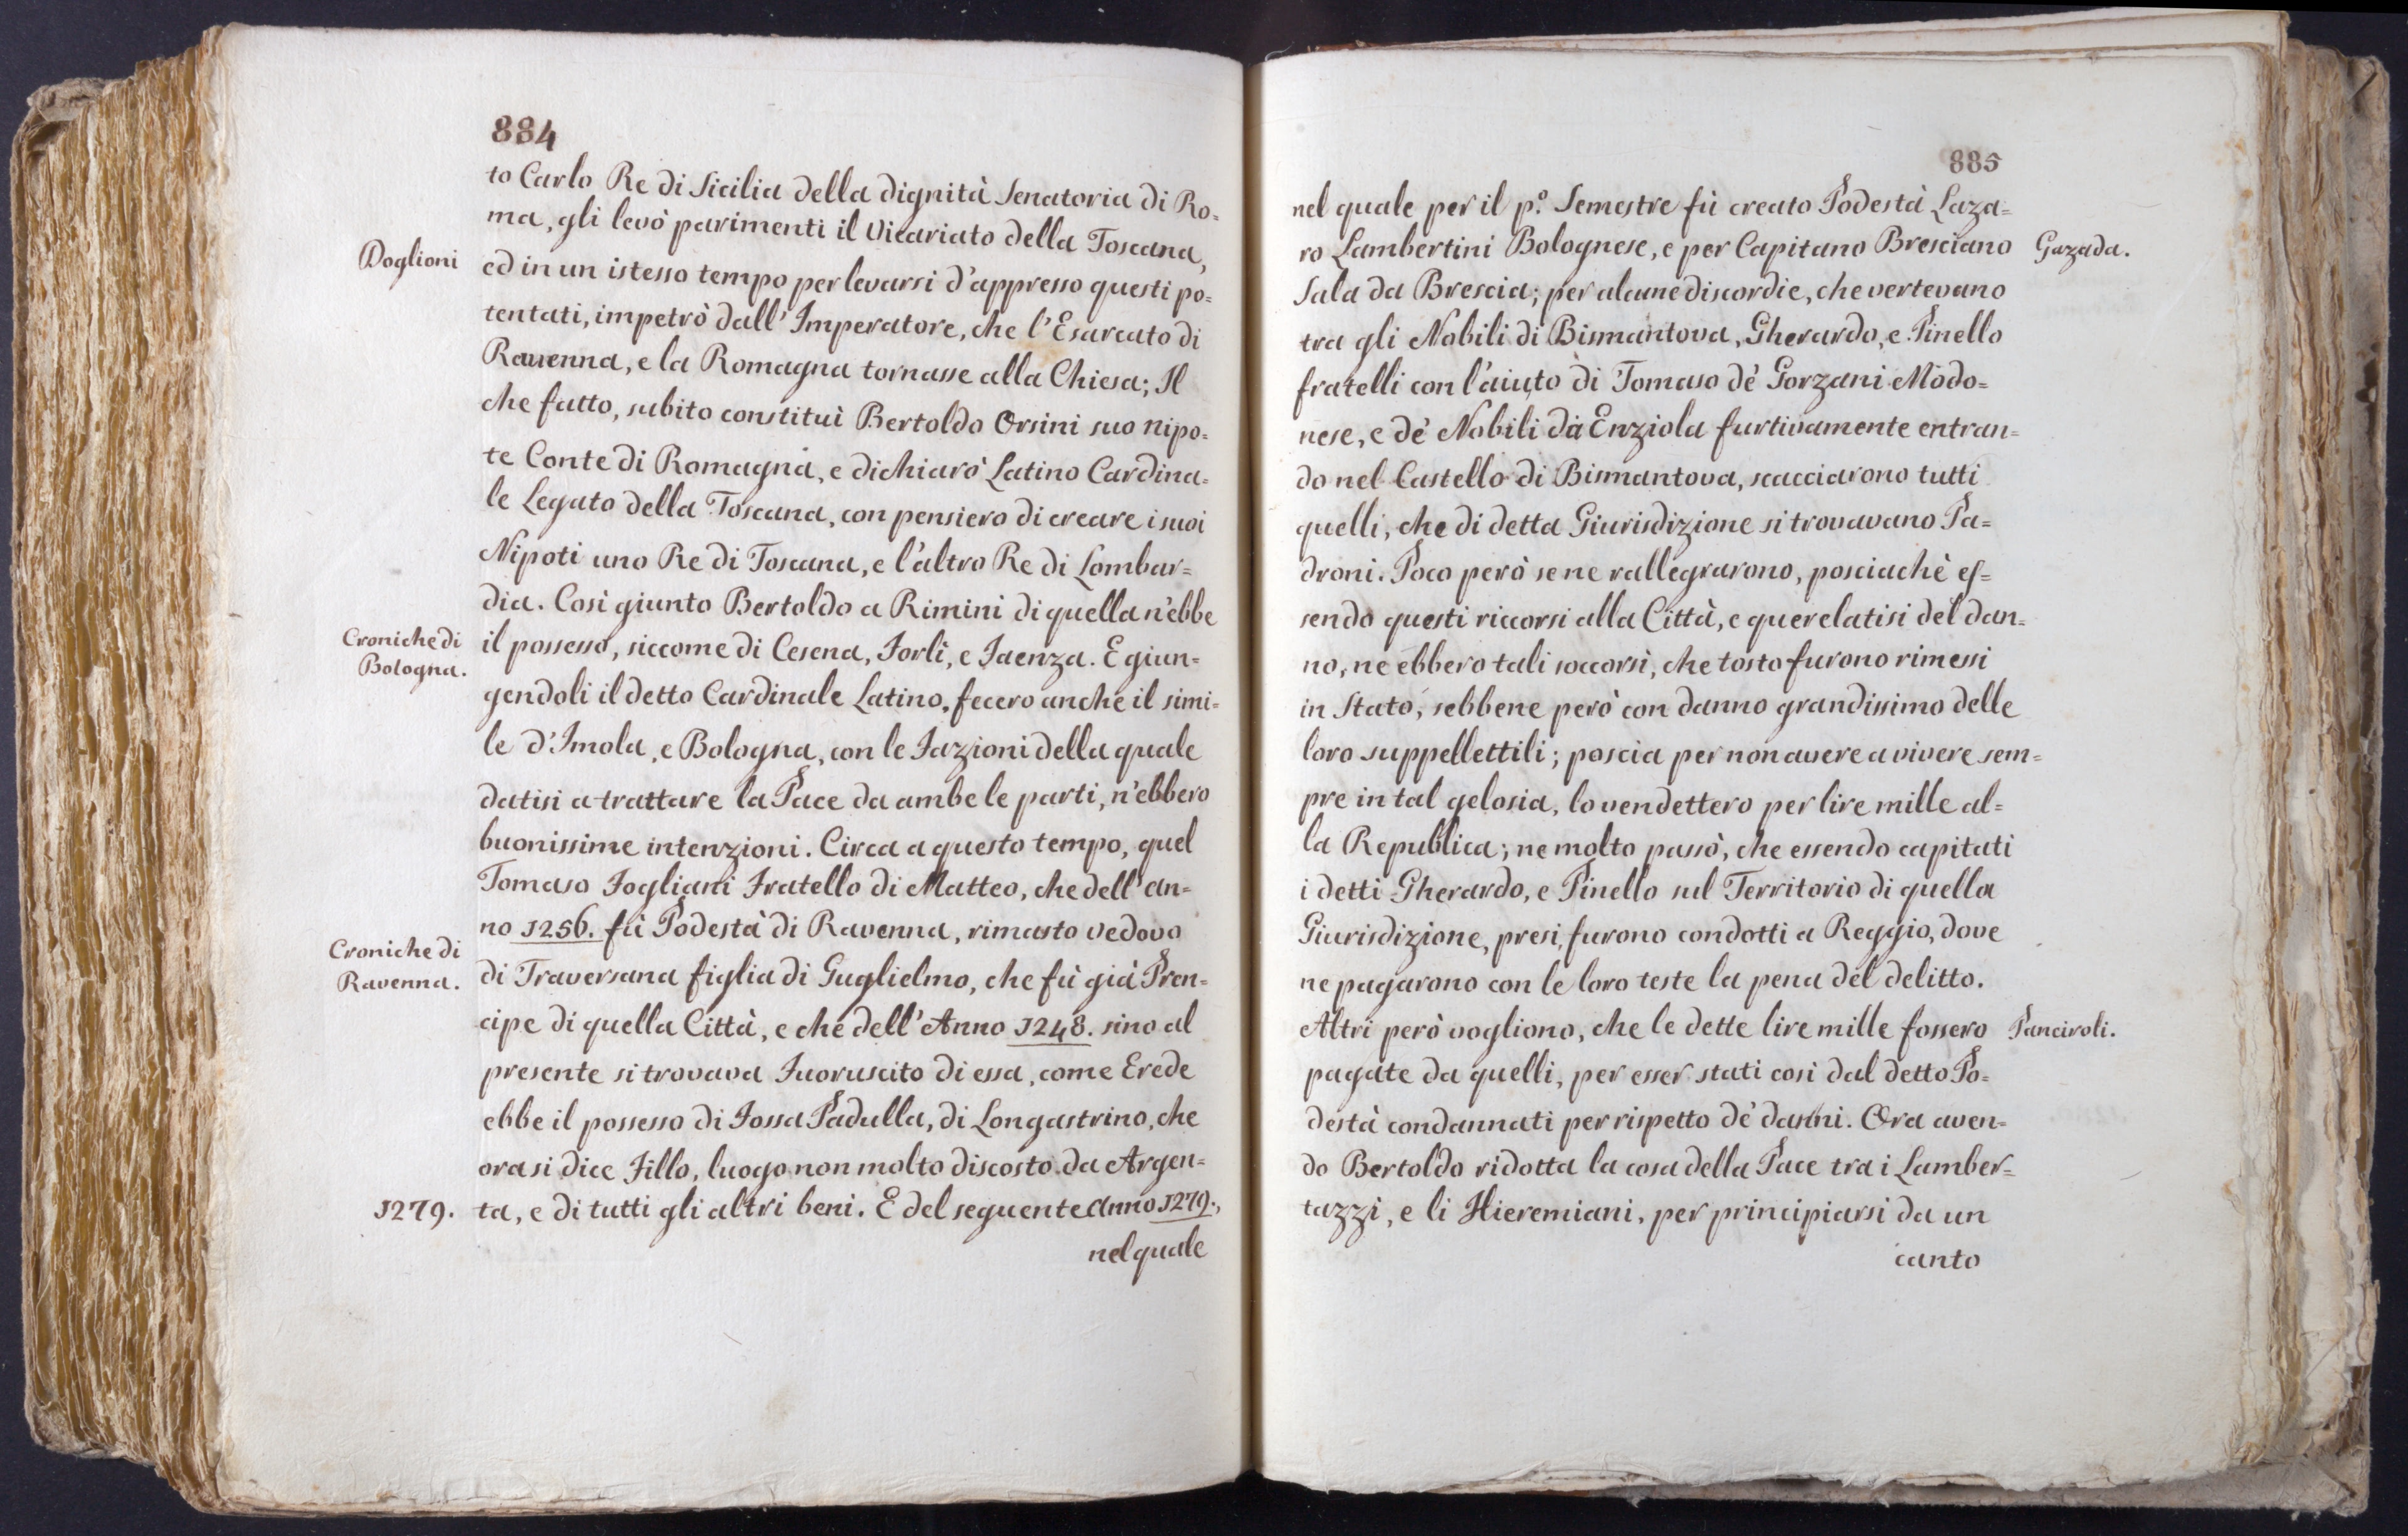 884
to Carlo Re di Sicilia della dignità Senatoria di Ro=
ma, gli levò parimenti il Vicariato della Toscana,
Doglioni
ed in un istesso tempo per levarsi d'appresso questi po=
tentati, impetrò dall'Imperatore, che l'Esarcato di
Rauenna, e la Romagna tornasse alla Chiesa; Il
che fatto, subito constituì Bertoldo Orsini suo nipo=
te Conte di Romagna, e dichiarò Latino Cardina=
le Legato della Toscana, con pensiero di creare i suoi
Nipoti uno Re di Toscana, e l'altro Re di Lombar=
dia. Così giunto Bertoldo a Rimini di quella n'ebbe
Croniche di
Bologna.
il possesso, siccome di Cesena, Forlì, e Faenza. E giun=
gendoli il detto Cardinale Latino, fecero anche il simi=
le d'Imola, e Bologna, con le Fazioni della quale
datisi a trattare la Pace da ambe le parti, n'ebbero
buonissime intenzioni. Circa a questo tempo, quel
Tomaso Fogliani Fratello di Matteo, che dell'an=
no 1256. fù Podestà di Ravenna, rimasto vedovo
Croniche di
Ravenna.
di Traversana figlia di Guglielmo, che fù già Pren=
cipe di quella Città, e che dell'Anno 1248. sino al
presente si trovava Fuoruscito di essa, come Erede
ebbe il possesso di Fossa Padulla, di Longastrino, che
ora si dice Fillo, luogo non molto discosto da Argen=
1279.
ta, e di tutti gli altri beni. E del seguente Anno 1279.,
nel quale
885
nel quale per il p.º Semestre fù creato Podestà Laza=
ro Lambertini Bolognese, e per Capitano Bresciano
Gazada.
Sala da Brescia; per alcune discordie, che vertevano
tra gli Nobili di Bismantova, Gherardo, e Pinello
fratelli con l'aiuto di Tomaso dè Gorzani Modo=
nese, e dè Nobili dà Enziola furtivamente entran=
do nel Castello di Bismantova, scacciarono tutti
quelli, che di detta Giurisdizione si trovavano Pa=
droni. Poco però se ne rallegrarono, posciachè es=
sendo questi riccorsi alla Città, e querelatisi del dan=
no, ne ebbero tali soccorsi, che tosto furono rimessi
in Stato, sebbene però con danno grandissimo delle
loro suppellettili; poscia per non auere a vivere sem=
pre in tal gelosia, lo vendettero per lire mille al=
la Republica; ne molto passò, che essendo capitati
i detti Gherardo, e Pinello sul Territorio di quella
Giurisdizione, presi, furono condotti a Reggio, dove
ne pagarono con le loro teste la pena del delitto.
Altri però vogliono, che le dette lire mille fossero
Panciroli.
pagate da quelli, per esser stati così dal detto Po=
destà condannati per rispetto dè danni. Ora aven=
do Bertoldo ridotta la cosa della Pace tra i Lamber=
tazzi, e li Hieremiani, per principiarsi da un
canto